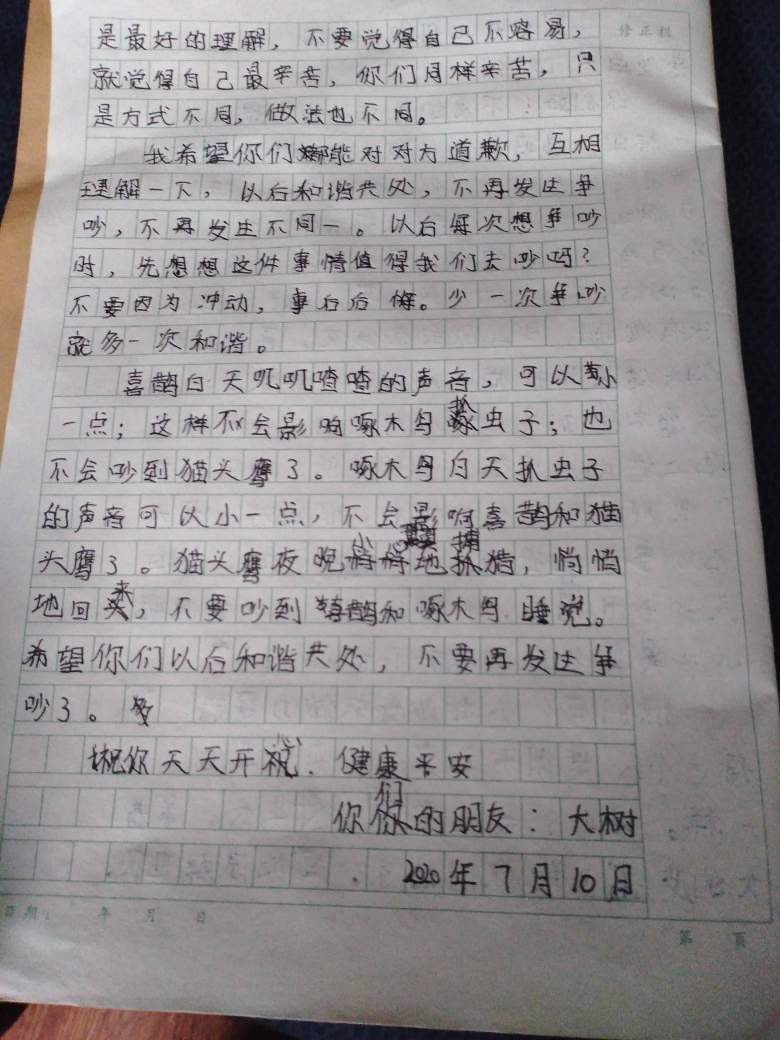 修正栏
是最好的理解，不要觉得自己不容易，
就觉得自己最辛苦，你们同样辛苦，只
是方式不同，做法也不同。
我希望你们都能对对方道歉，互相
理解一下，以后和谐共处，不再发生争
吵，不再发生不同一。以后每次想争吵
时，先想想这件事情值得我们去吵吗？
不要因为冲动，事后后悔。少一次争吵
就多一次和谐。
喜鹊白天叽叽喳喳的声音，可以小
一点；这样不会影响啄木鸟抓虫子；也
不会吵到猫头鹰了。啄木鸟白天抓虫子
的声音可以小一点，不会影响喜鹊和猫
头鹰了。猫头鹰夜晚小心地捕猎，悄悄
地回来，不要吵到喜鹊和啄木鸟睡觉。
希望你们以后和谐共处，不要再发生争
吵了。
祝你天天开心、健康平安
你们的朋友：大树
2020年7月10日
日期： 年 月 日
第 页